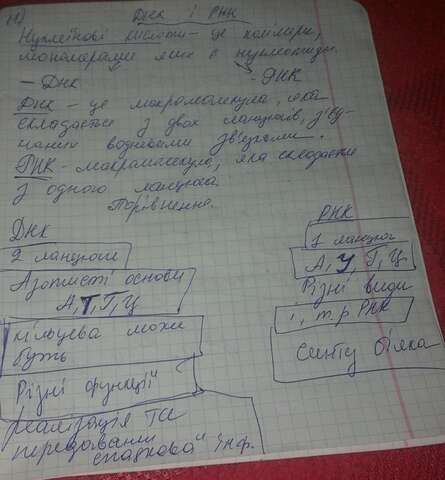 ДНК і РНК
Нуклеїнові кислоти - це полімери,
мономерами яких є нуклеотиди.
- ДНК - РНК
ДНК - це макромолекула, яка
складається з двох ланцюгів, з'єд-
наних водневими зв'язками.
РНК - макромолекула, яка складається
з одного ланцюга.
Порівняння.
ДНК
2 ланцюги
Азотисті основи
А, Т, Г, Ц
кільцева може
буть
Різні функції
реалізація та
передавання
спадкової інф.
РНК
1 ланцюг
А, У, Г, Ц
Різні види
і, т, р РНК
Синтез білка